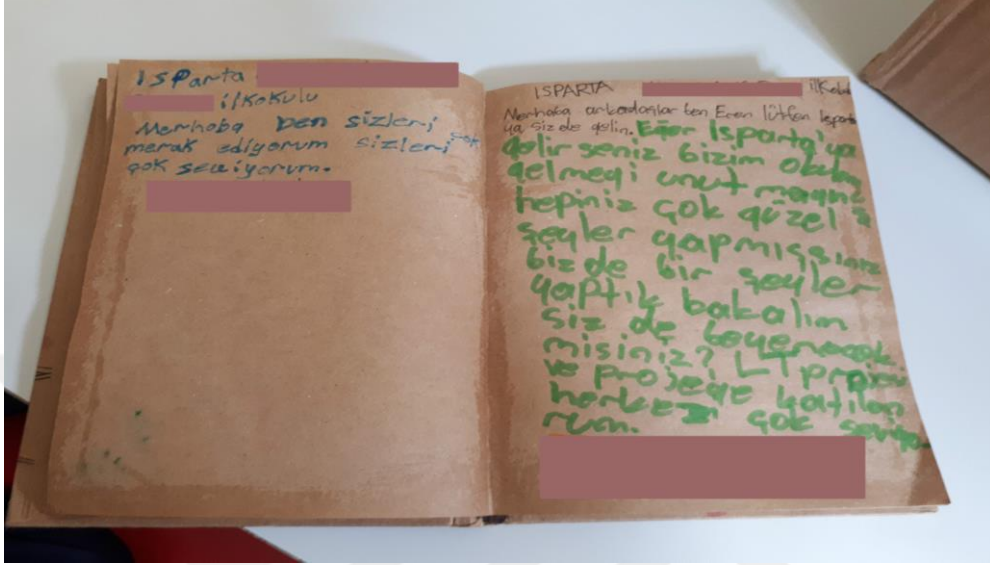 Isparta
ilkokulu
Merhaba ben sizleri
merak ediyorum sizleri çok
çok seviyorum.
ISPARTA ilkokulu
Merhaba arkadaşlar ben Eren lütfen Isparta
ya sizde gelin. Eğer Isparta'ya
gelirseniz bizim okula
gelmeği unutmayınız
hepiniz çok güzel
şeyler yapmışsınız
bizde bir şeyler
yaptık bakalım
siz de beyenecek
misiniz? LT projesi
ve projeye katılan
herkezi çok seviyo
rum.